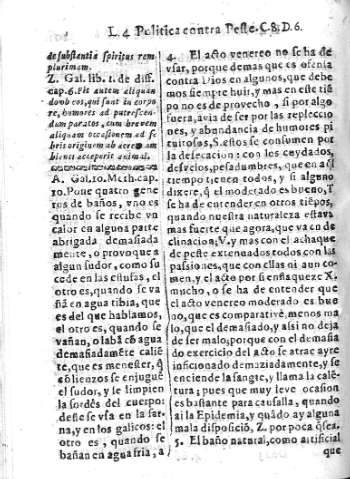 L. 4 Politica contra Peste. C. 8. D. 6.
de substantia spiritus rem
plurimam.
Z. Gal. lib. 1. de diff.
cap. 6. Fit autem aliquan
do ob eos, qui sunt in corpo
re, humores ad putrescen-
dum paratos, cum brevem
aliquam occasionem ad fe
bris originem ab aere am
bienti acceperit animal.
A. Gal. 10. Meth. cap.
10. Pone quatro gene
ros de baños, vno es
quando se recibe vn
calor en alguna parte
abrigada demasiada
mente, o provoque a
algun sudor, como su
cede en las estufas, el
otro es, quando se va
ña en agua tibia, que
es del que hablamos,
el otro es, quando se
vañan, o labã cõ agua
demasiadamẽte caliẽ
te, que es menester, q̃
comiẽcen los a enjugue
el sudor, y le limpien
la sordes del cuerpo:
deste se vsa en la sar-
na, y en los galicos: el
otro es, quando se
bañan en agua fria, a
4. El acto venereo no se ha de
vsar, porque demas que es ofensa
contra Dios en algunos, que debe
mos siempre huir, y mas en este tiẽ
po no es de provecho, si por algo
fuera, avia de ser por las repleccio
nes, y abundancia de humores pi
tuitosos, S. estos se consumen por
la desecacion: con los cuydados,
desvelos, pesadumbres, que en aq̃l
tiempo tienen todos, y si alguno
dixere, q̃ el moderado es bueno, T
se ha de entender en otros tiẽpos,
quando nuestra naturaleza estava
mas fuerte que agora, que va en de
clinacion; V. y mas con el achaque
de peste extenuados todos con las
passiones, que con ellas ni aun co-
men, y el acto por si enflaquece X.
mucho, o se ha de entender que
el acto venereo moderado es bue
no, que es comparativè, menos ma
lo, que el demasiado, y assi no deja
de ser malo; porque con el demasia
do exercicio del acto se atrae ayre
inficionado demaziadamente, y se
enciende la sangre, y llama la calẽ-
tura; pues que muy leve ocasion
es bastante para causalla, quando
ai la Epidemia, y quãdo ay alguna
mala disposiciõ, Z. por poca q̃ sea.
5. El baño natural, como artificial
que